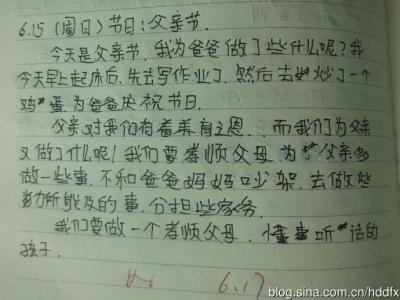 6.15（周日）节日：父亲节
今天是父亲节，我为爸爸做了些什么呢？我
今天早上起床后，先去写作业了，然后去炒了一个
鸡蛋为爸爸庆祝节日.
父亲对我们有着养育之恩，而我们为父亲
又做了什么呢！我们要孝顺父母，为父亲多
做一些事，不和爸爸妈妈吵架，去做些
力所能及的事，分担些家务.
我们要做一个孝顺父母，懂事听话的
孩子.
6.17
blog.sina.com.cn/hddfx